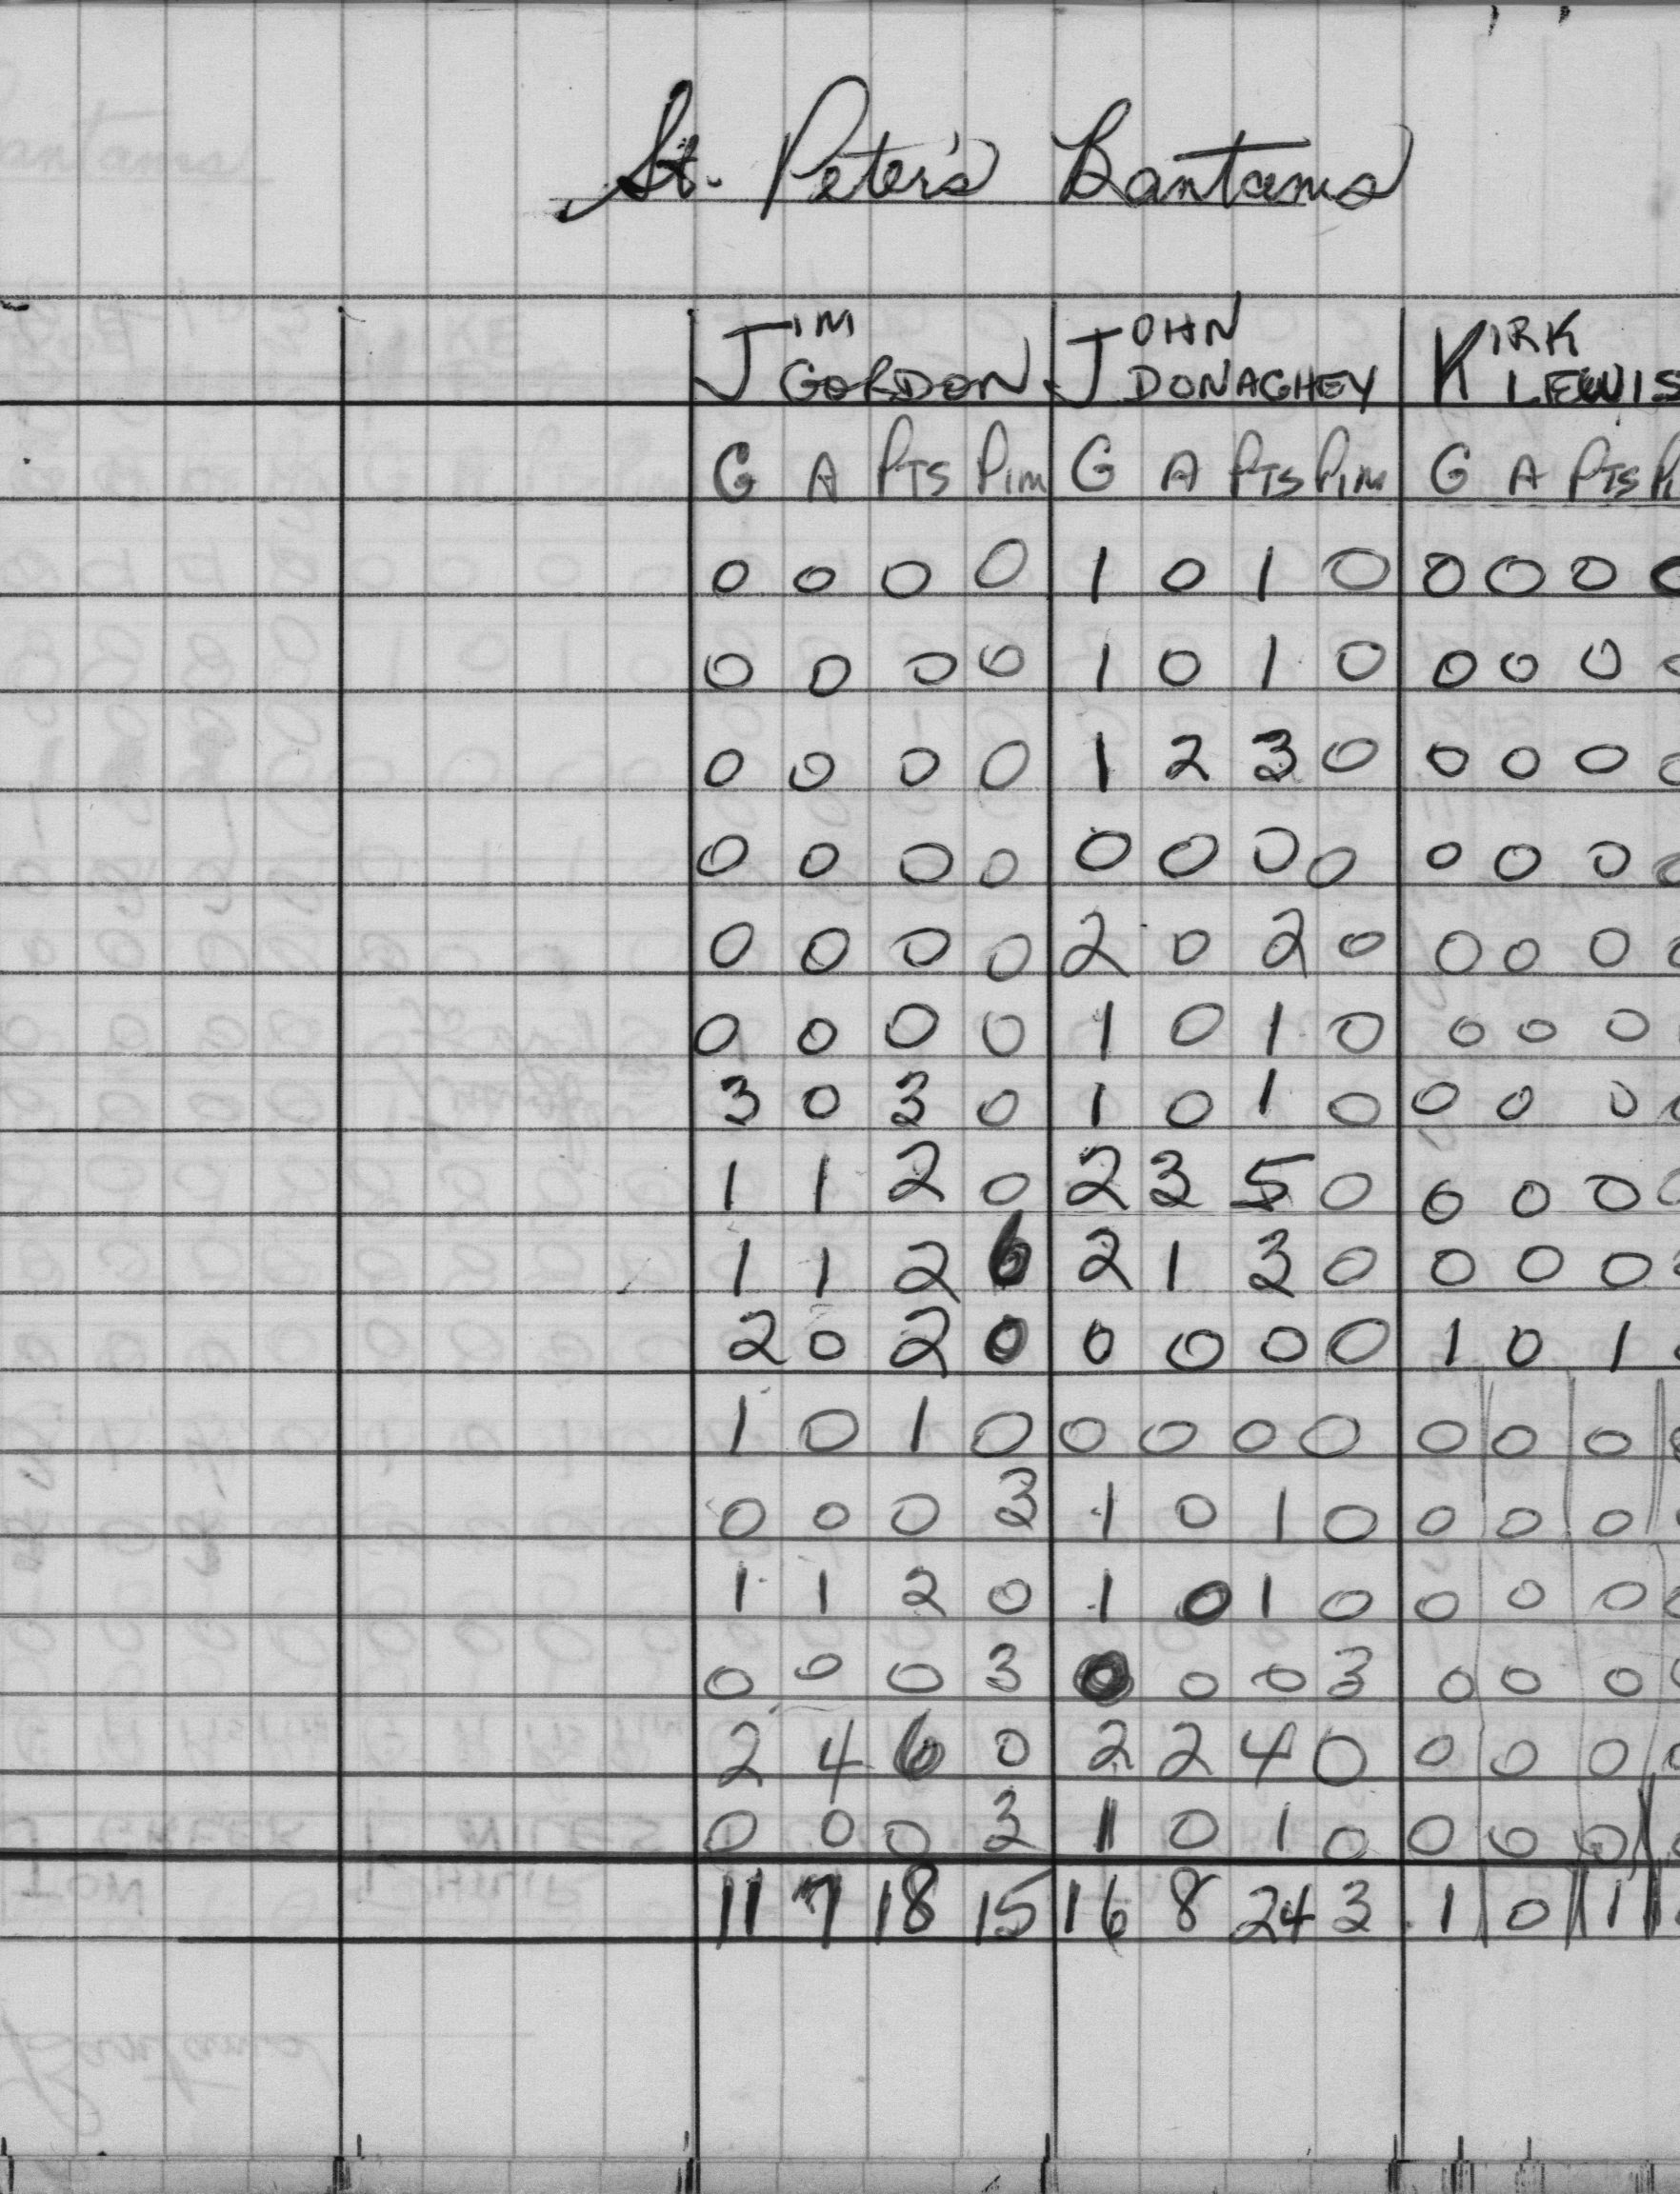 St. Peter's Bantams
JIM GORDON JOHN DONAGHEY KIRK LEWIS
G A PTS PIM G A PTS PIM G A PTS
0 0 0 0 1 0 1 0 0 0 0 0
0 0 0 0 1 0 1 0 0 0 0
0 0 0 0 1 2 3 0 0 0 0 0
0 0 0 0 0 0 0 0 0 0 0 0
0 0 0 0 2 0 2 0 0 0 0 0
0 0 0 0 1 0 1 0 0 0 0
3 0 3 0 1 0 1 0 0 0 0
1 1 2 0 2 3 5 0 0 0 0 0
1 1 2 6 2 1 3 0 0 0 0
2 0 2 0 0 0 0 0 1 0 1
1 0 1 0 0 0 0 0 0 0 0
0 0 0 3 1 0 1 0 0 0 0
1 1 2 0 1 0 1 0 0 0 0
0 0 0 3 0 0 0 3 0 0 0
2 4 6 0 2 2 4 0 0 0 0
0 0 0 3 1 0 1 0 0 0 0
11 7 18 15 16 8 24 3 1 0 1